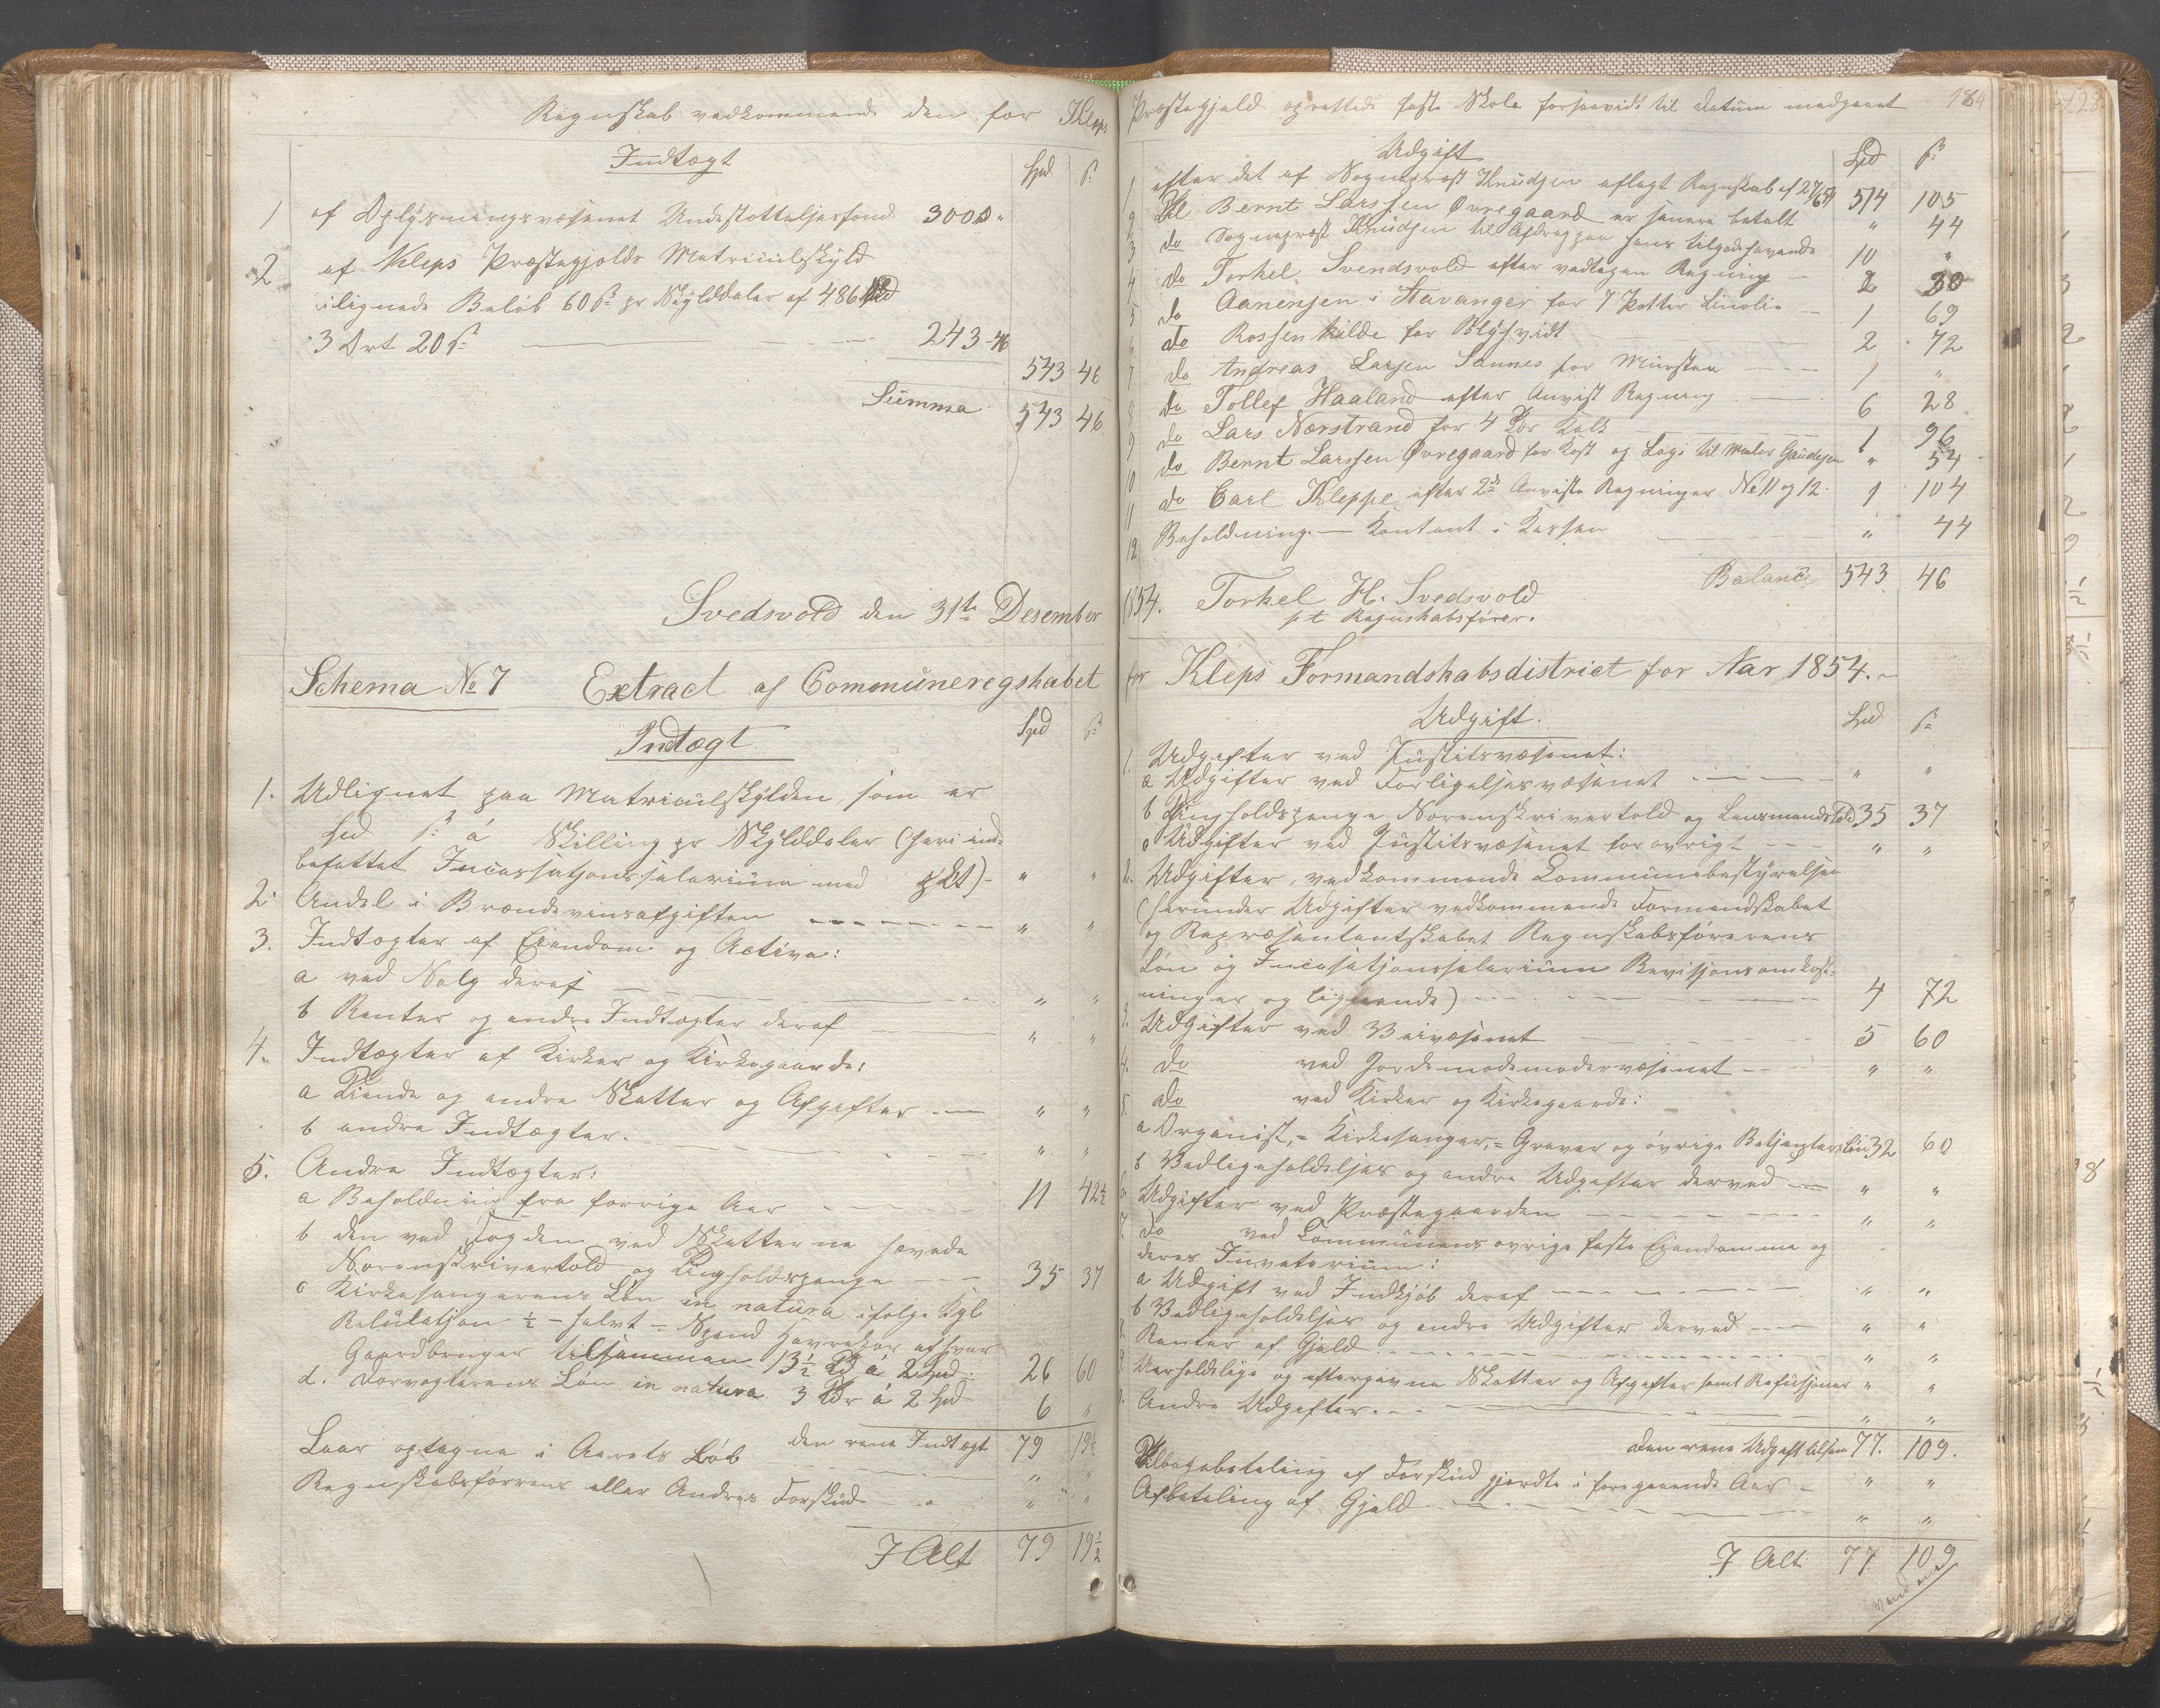 Regnskab vedkommende den for Kleps
Indtægt
Spd ß
1 af Oplysningsvæsenets Understøttelsesfond 300 "
2 af Kleps Præstegjelds Matriculskyld
ilignede Beløb 60 ß pr Skylddaler af 486
3 Ort 20 ß 243 - 46
543 46
Summa 543 46
Svedsvold den 31te Desember
Schema No 7 Extract af Communeregskabet
Indtægt
Spd ß
1. Udlignet paa Matriculskylden, som er
Spd ß á Skilling pr Skylddaler (heri ind-
befattet Incassationssalarium med pCt) - " "
2. Andel i Brændevinsafgiften " "
3. Indtægter af Eiendom og Activa:
a ved Salg deraf " "
b Renter og andre Indtægter deraf " "
4. Indtægter af Kirker og Kirkegaarde:
a Tiende og andre Skatter og Afgifter " "
b andre Indtægter. " "
5. Andre Indtægter:
a Beholdning fra forrige Aar 11 42½
b den ved Fogden ved Skatterne hævede
Sorenskrivertold og Tingholdspenge 35 37
c Kirkesangerens Løn in natura ifølge Kgl
Relulation ½ - halvt - Spand Havrekorn af hver
Gaardbruger tilsammen 13½ Td á 2 Spd 26 60
d. Dorvogterens Løn in natura 3 Tdr á 2 Spd 6 "
den rene Indtægt 79 19½
Laan optagne i Aarets Løb " "
Regnskabsførrens eller Andres Forskud " "
I Alt 79 19½
Præstegjeld oprettede faste Skole forsaavidt til datum medgaaet 184
Udgift
Spd ß
1 efter det af Sognepræst Knudsen aflagt Regnskab af 27/6 54 514 105
2 Til Bernt Larssen Øvregaard er senere betalt " 44
3 do Sognepræst Knudsen til Afdrag paa hans tilgodehavende 10 "
4 do Torkel Svendsvold efter vedtagen Regning 2 30
5 do Aanensen i Stavanger for 7 Potter Linolie 1 69
6 do Rossenkilde for Blyhvidt 2 72
7 do Andreas Larsen Sannes for Mursten 1 "
8 do Tollef Haaland efter Anvist Regning 6 28
9 do Lars Nærstrand for 4 Tdr Kalk 1 96
10 do Bernt Larssen Øvregaard for Kost og Logi til Maler Gaudesen " 54
11 do Carl Kleppe efter 2de Anviste Regninger No 11 og 12 1 104
12 Beholdning - Kontant i Kassen " 44
Balance 543 46
1854. Torkel H. Svedsvold
p t Regnskabsfører.
for Kleps Formandskabsdistrict for Aar 1854.
Udgift.
Spd ß
1. Udgifter ved Justitsvæsenet:
a Udgifter ved Forligelsesvæsenet " "
b Tingholdspenge Sorenskrivertold og Lensmandstold 35 37
c Udgifter ved Justitsvæsenet forøvrigt " "
2. Udgifter, vedkommende Communebestyrelsen
(herunder Udgifter vedkommende Formandskabet
og Repræsentantskabet Regnskabsførerens
Løn og Incasationssalarium Revisionsomkost-
ninger og lignende) 4 72
3. Udgifter ved Veivæsenet 5 60
4. do ved Jordemodemodervæsenet " "
5. do ved Kirker og Kirkegaarde:
a Organist, - Kirkesanger, - Graver og øvrige Betjenters Løn 32 60
b Vedligeholdelses og andre Udgifter derved " "
6. Udgifter ved Præstegaarden " "
7. do ved Communens øvrige faste Eiendomme og
deres Inventarium:
a Udgift ved Indkjøb deraf " "
b Vedligeholdelses og andre Udgifter derved " "
8. Renter af Gjeld " "
9. Uerholdelige og eftergivne Skatter og Afgifter samt Refusioner " "
Andre Udgifter. " "
Den rene Udgift tilsam 77. 109.
Tilbagebetaling af Forskud gjordte i foregaaende Aar " "
Afbetaling af Gjeld " "
I Alt 77 109